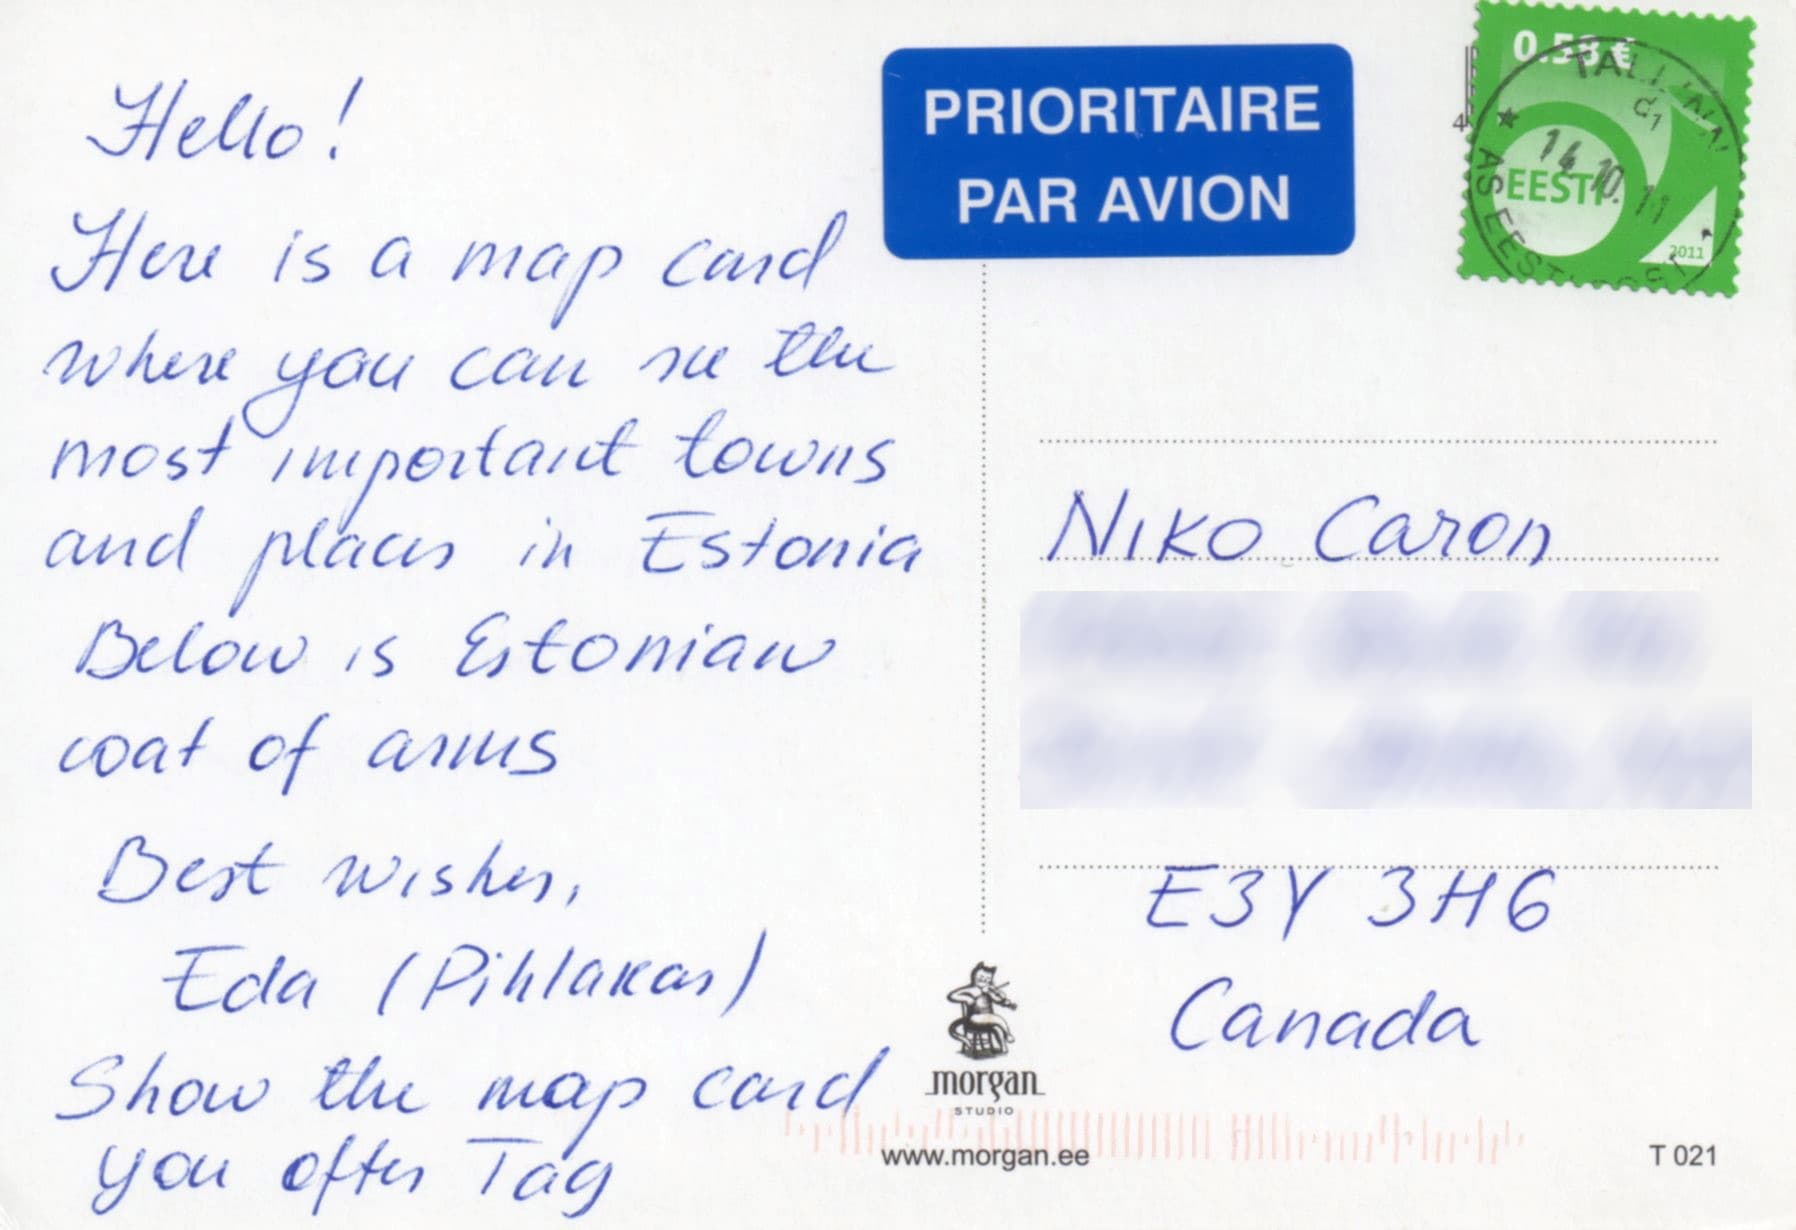 Hello!
Here is a map card
where you can see the
most important towns
and places in Estonia
Below is Estonian
coat of arms
Best wishes,
Eda (Pihlakas)
Show the map card
you ofter Tag
PRIORITAIRE
PAR AVION
0.58 €
EESTI
2011
TALLINN
14.10.11
Niko Caron
E3Y 3H6
Canada
morgan
STUDIO
www.morgan.ee
T 021